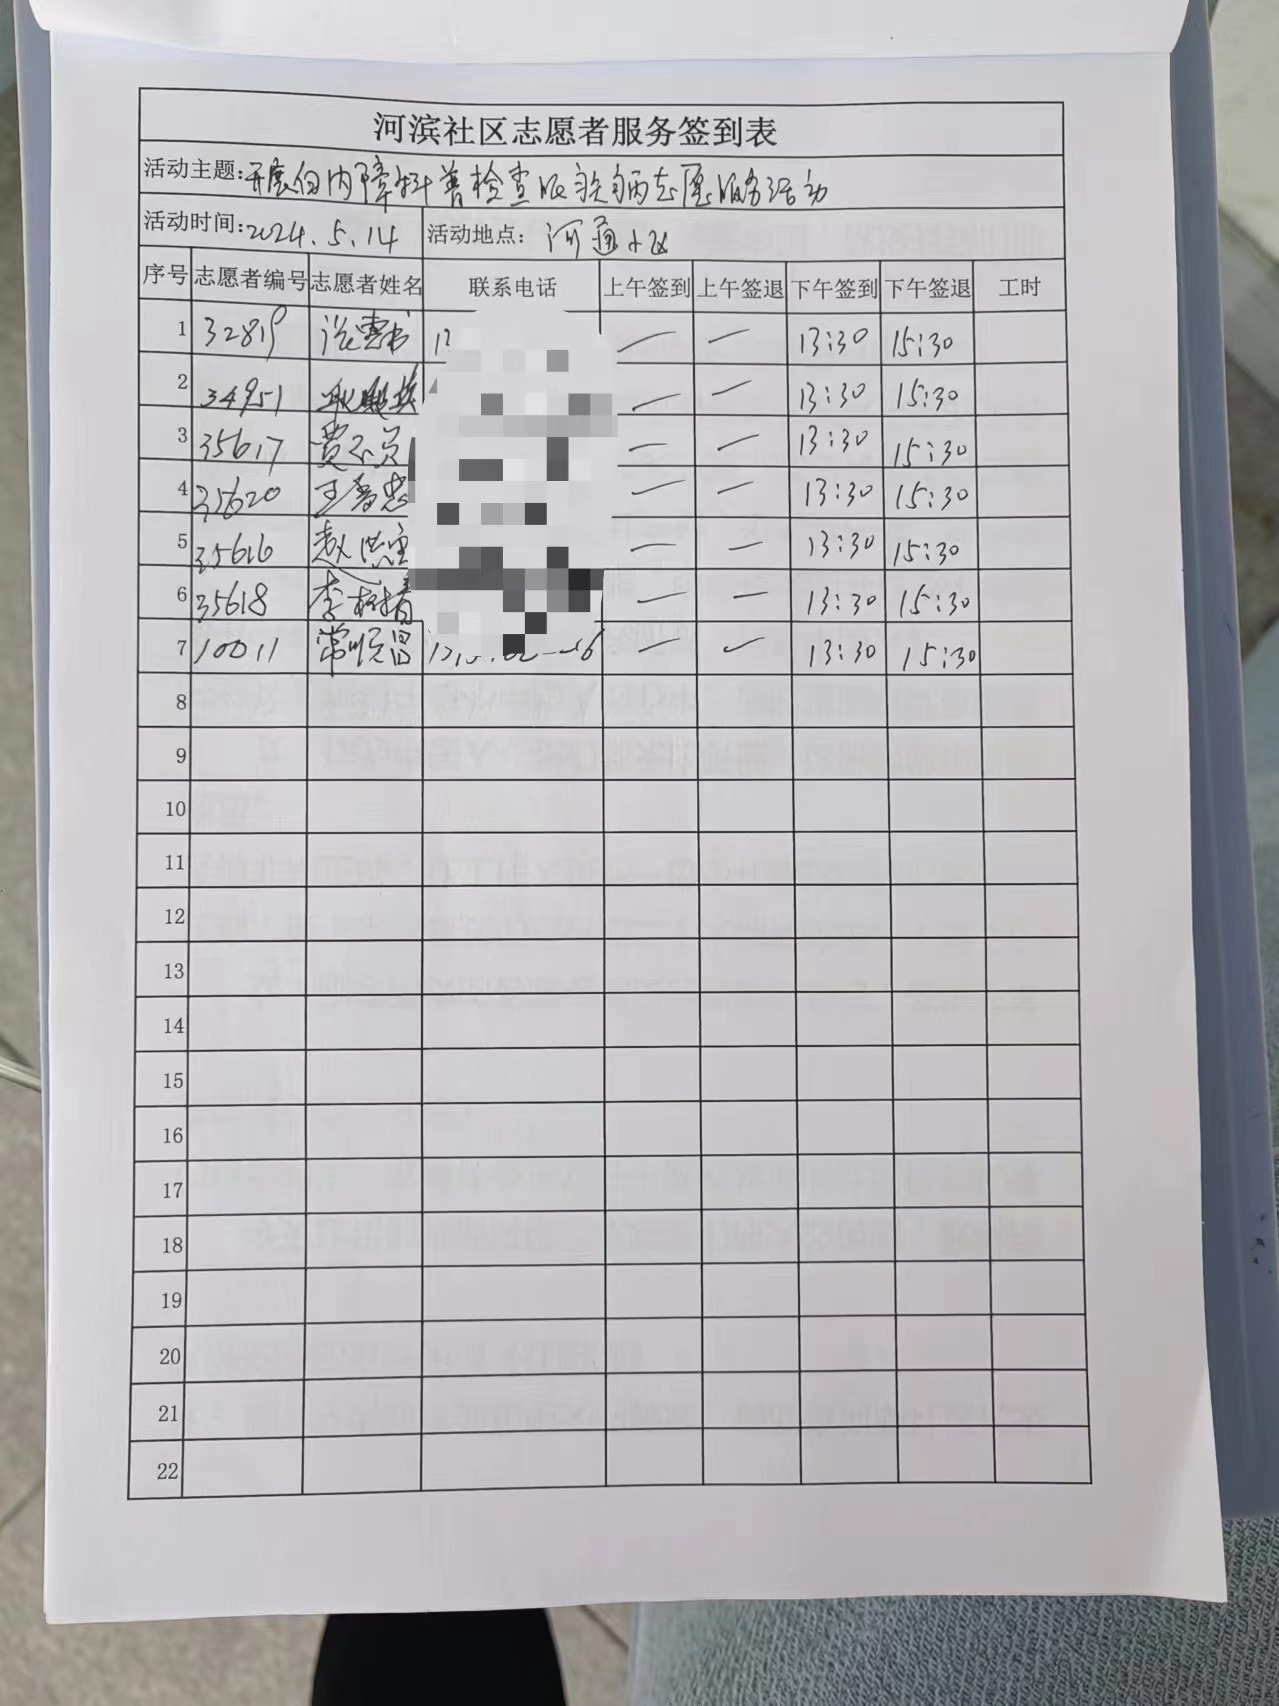 河滨社区志愿者服务签到表
活动主题：开展白内障科普检查眼疾病志愿服务活动
活动时间：2024.5.14 活动地点： 河道小区
序号 志愿者编号 志愿者姓名 联系电话 上午签到 上午签退 下午签到 下午签退 工时
1 32819 — — 13:30 15:30
2 34951 — — 13:30 15:30
3 35617 — — 13:30 15:30
4 35620 王春忠 — — 13:30 15:30
5 35616 — — 13:30 15:30
6 35618 李树清 — — 13:30 15:30
7 10011 常顺昌 — — 13:30 15:30
8
9
10
11
12
13
14
15
16
17
18
19
20
21
22